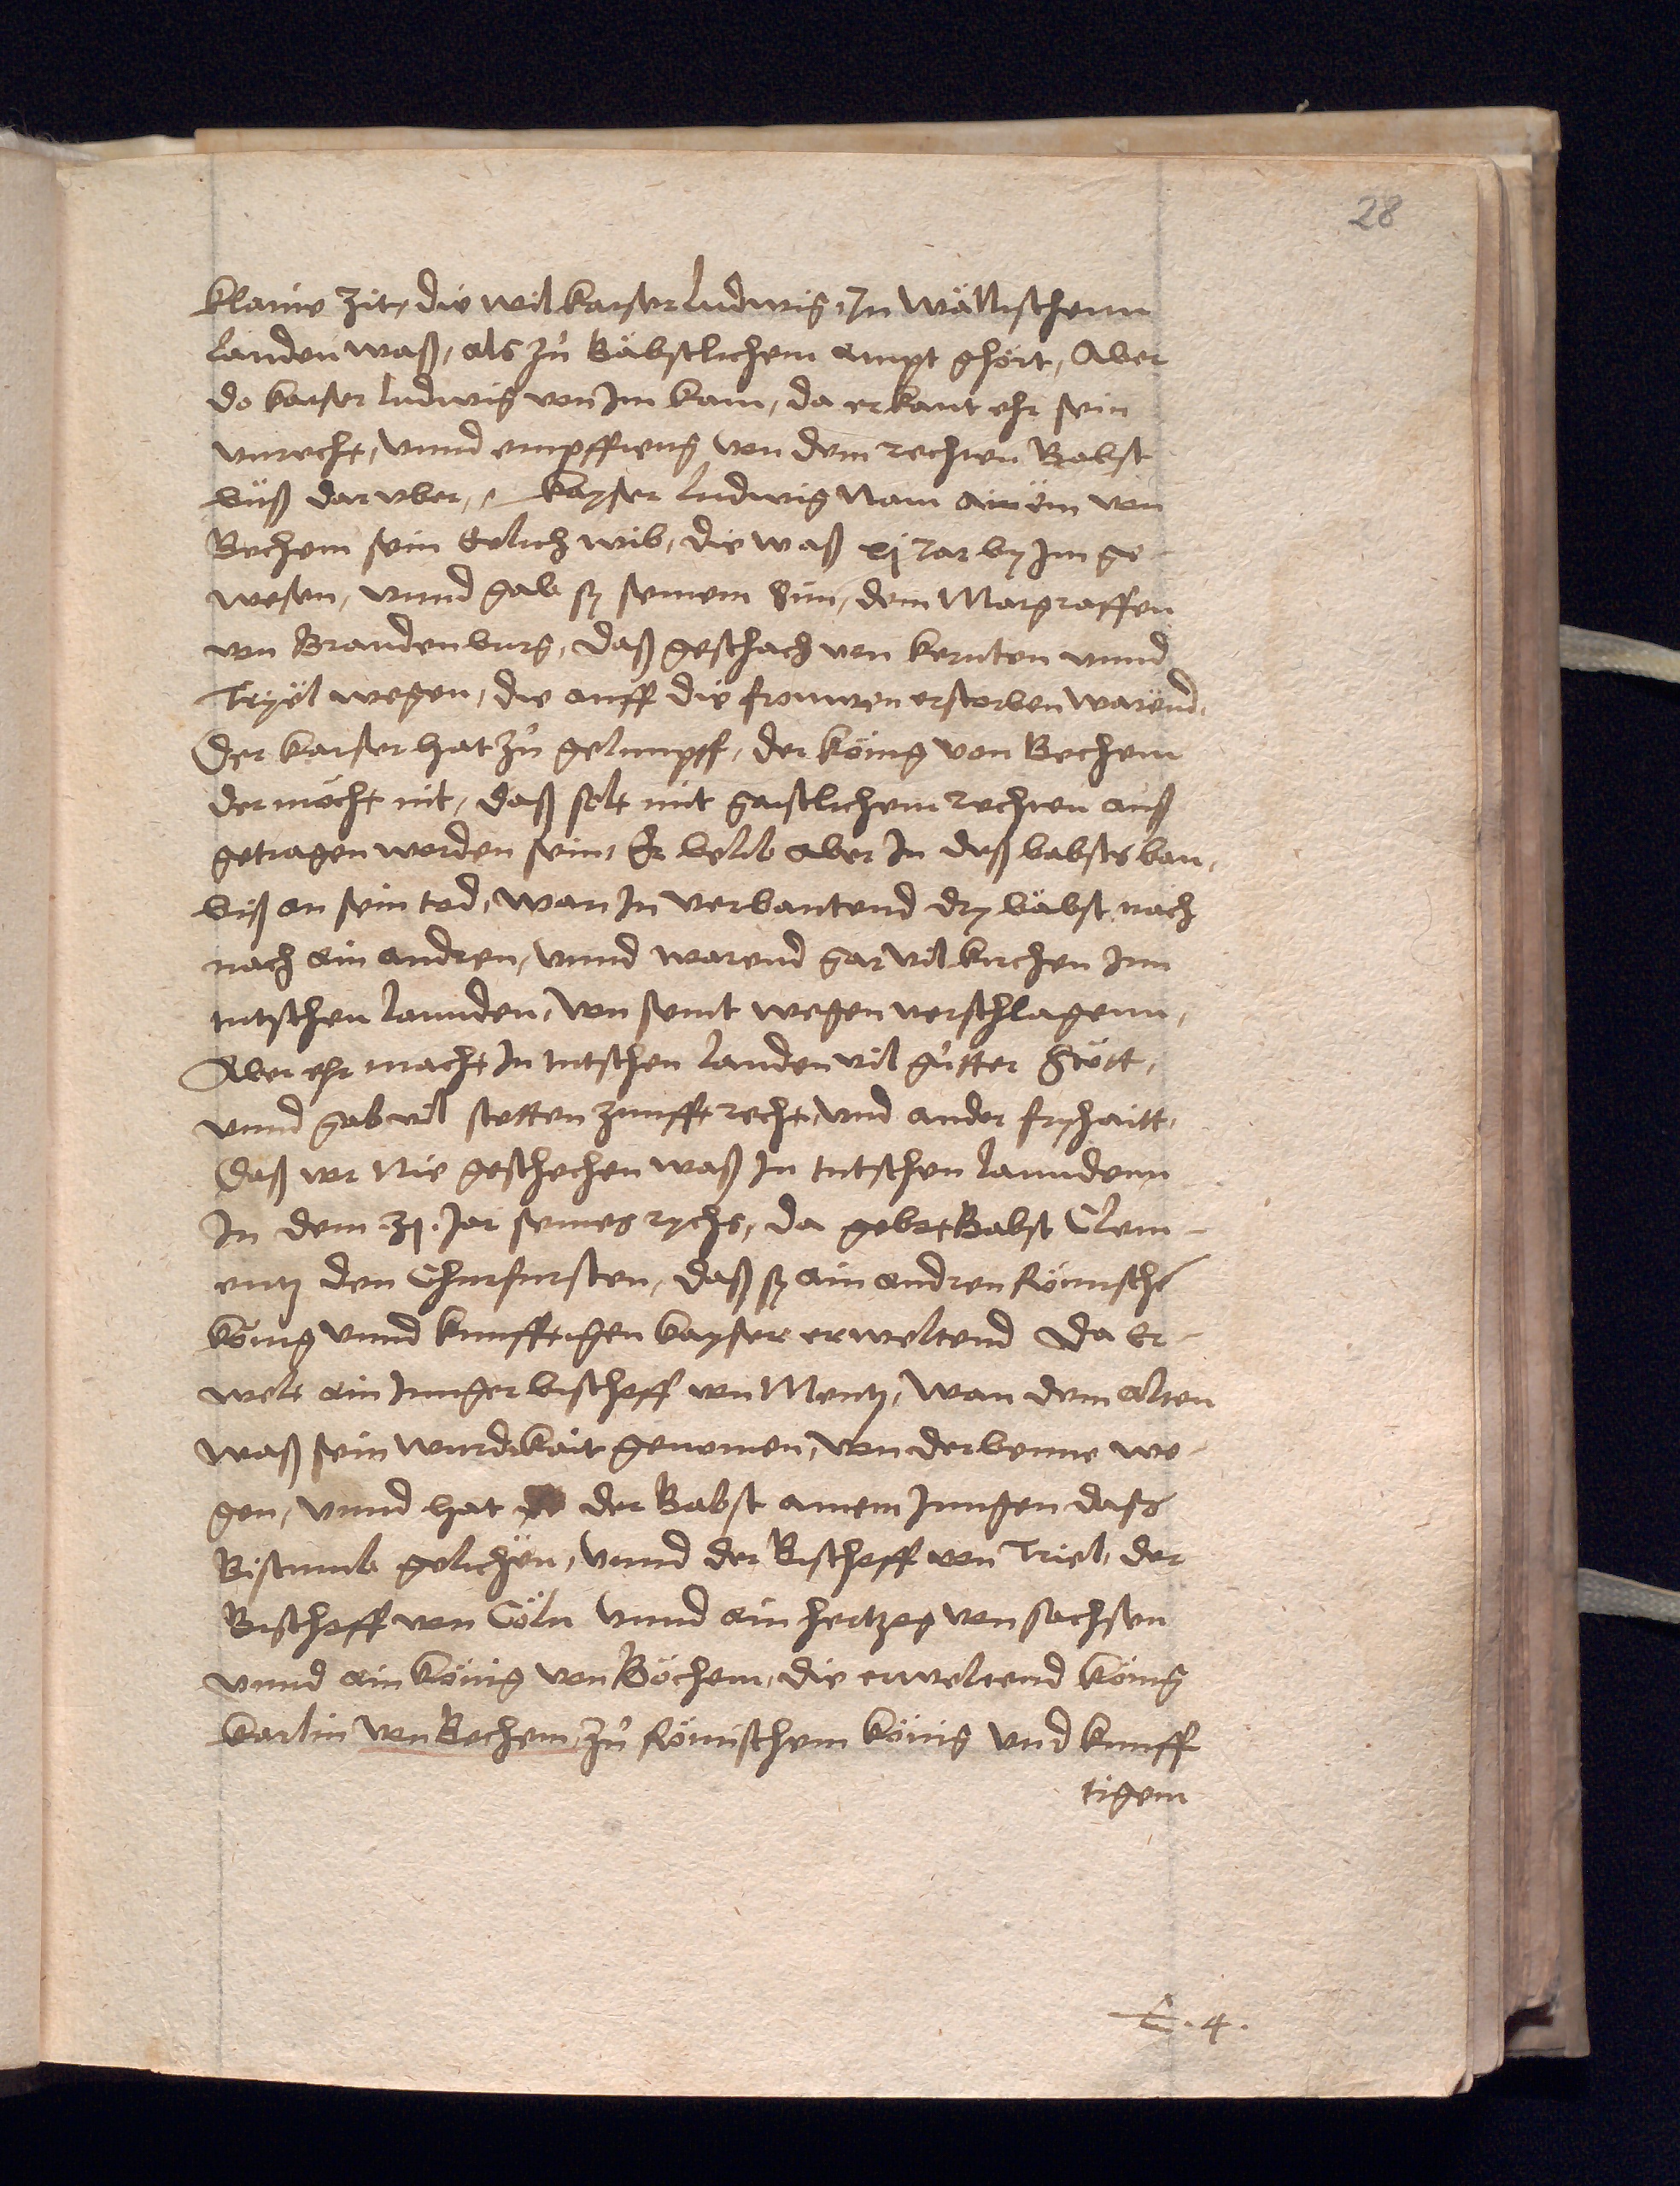 28
klaine zit, die wil kaiser ludwig, In wällischenn
landen waß, als zů Bäbstlichem ampt ghört, Aber
do kaiser ludwig von Im kam, da erkant ehr sein
vnrecht, vnnd empffieng von dem rechten Babst
büß dar vber, kayser ludwig Nam ainem von
Bechem sein Eelich wib, die waß xj Jar by Im ge
wesen, vnnd gab sy seinem Sun, dem Margraffen
von Brandenburg, daß geschach von kernten vnnd
Tryel wegen, die auff die frouwen erstorben warend,
Der kaiser hat zů gelimpff, der könig von Bechem
der möcht nit, daß solt mit gaistlichem rechten auß
getragen worden sein, Er belib aber In deß babsts ban,
biß an sein tod, wan In verbantend dry bäbst nach
nach ain andren, vnnd warend gar vil kirchen Inn
tutschen lannden, von seint wegen verschlagenn,
Aber ehr macht In tutschen landen vil gůtter Stött,
vnnd gab vil stetten zunfft recht, vnd ander fryhaitt,
Daß vor Nie geschechen waß In tutschen lanndenn
In dem 31. Jar seines rychs, da gebot Babst Clem-
entz den Churfursten, daß sy ain andren Römische
könig vnnd kunfftigen kayser erweltend Da Er-
welt ain Iunger bischoff von Mentz, wan dem alten
waß sein wurdikait genomen, von der benne we-
gen, vnnd hat der Babst ainem Jungen dass
Bistumb gelichen, vnnd der Bischoff von Triel, der
Bischoff von Cöln vnnd ain hertzog von sachsen
vnnd ain könig von Böchem, die erweltend könig
karlin von Bechem, zů Römischem könig vnd kunff
tigem
E. 4.